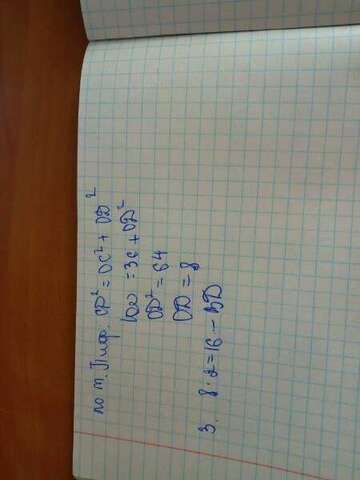 по т. Пиф. CD² = OC² + OD²
100 = 36 + OD²
OD² = 64
OD = 8
3. 8 · 2 = 16 - BD